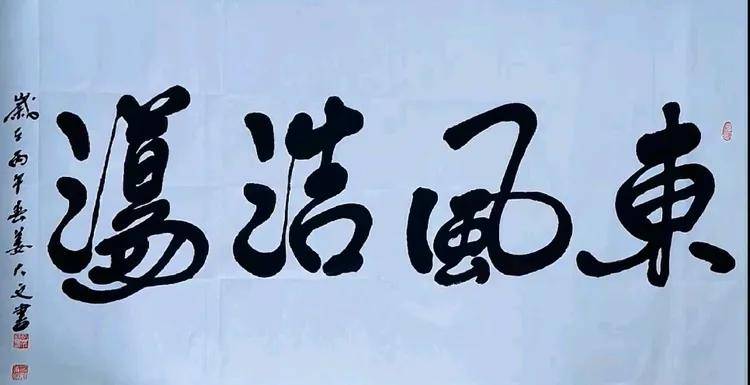 東風浩蕩
歲在丙午春姜大文書